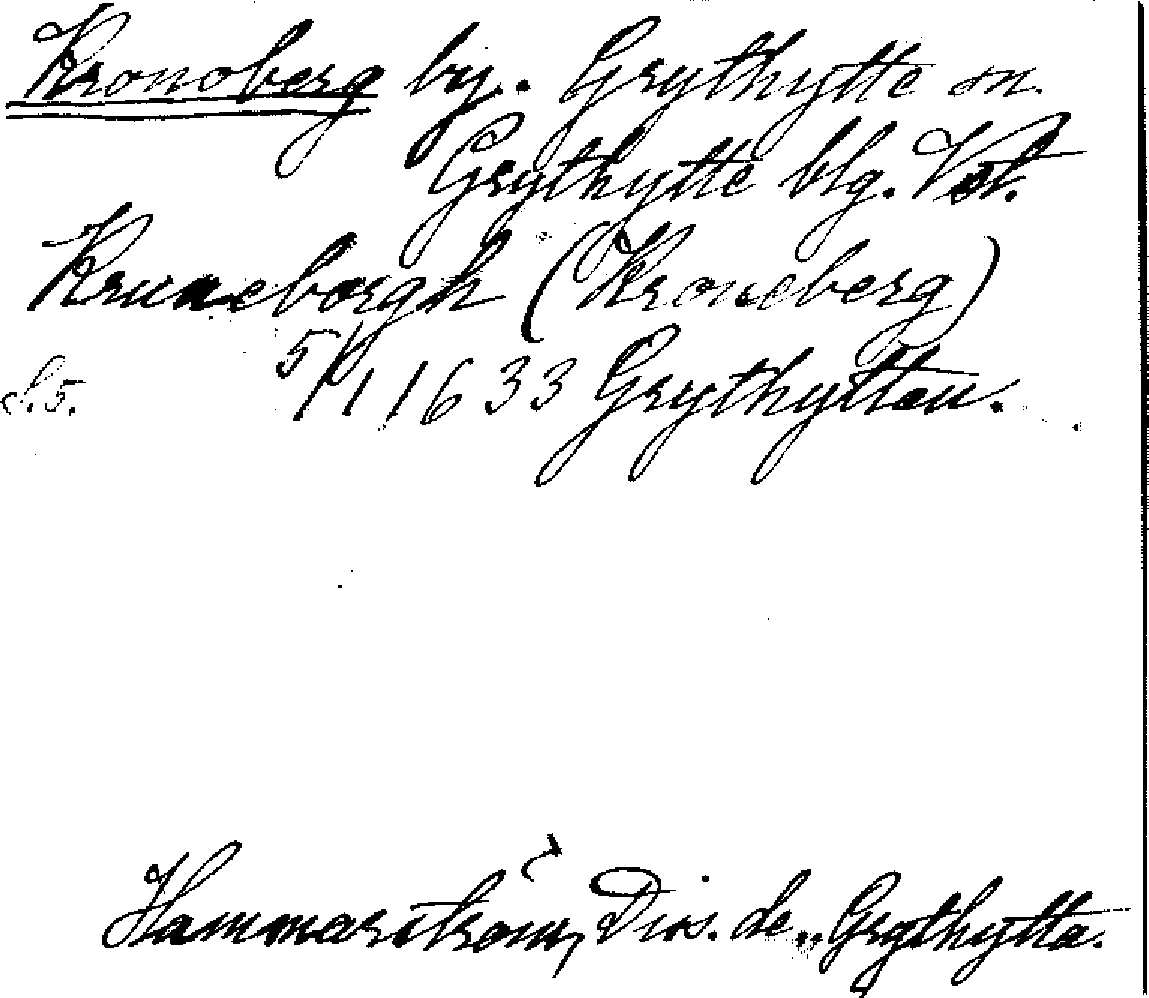 Kronoberg by. Grythytte sn.
Grythytte blg. Vstl.
Kruneborgh (Kroneberg)
S. 5. 5/11 1633 Grythyttan.
Hammarström, Dis. de Grythytta.